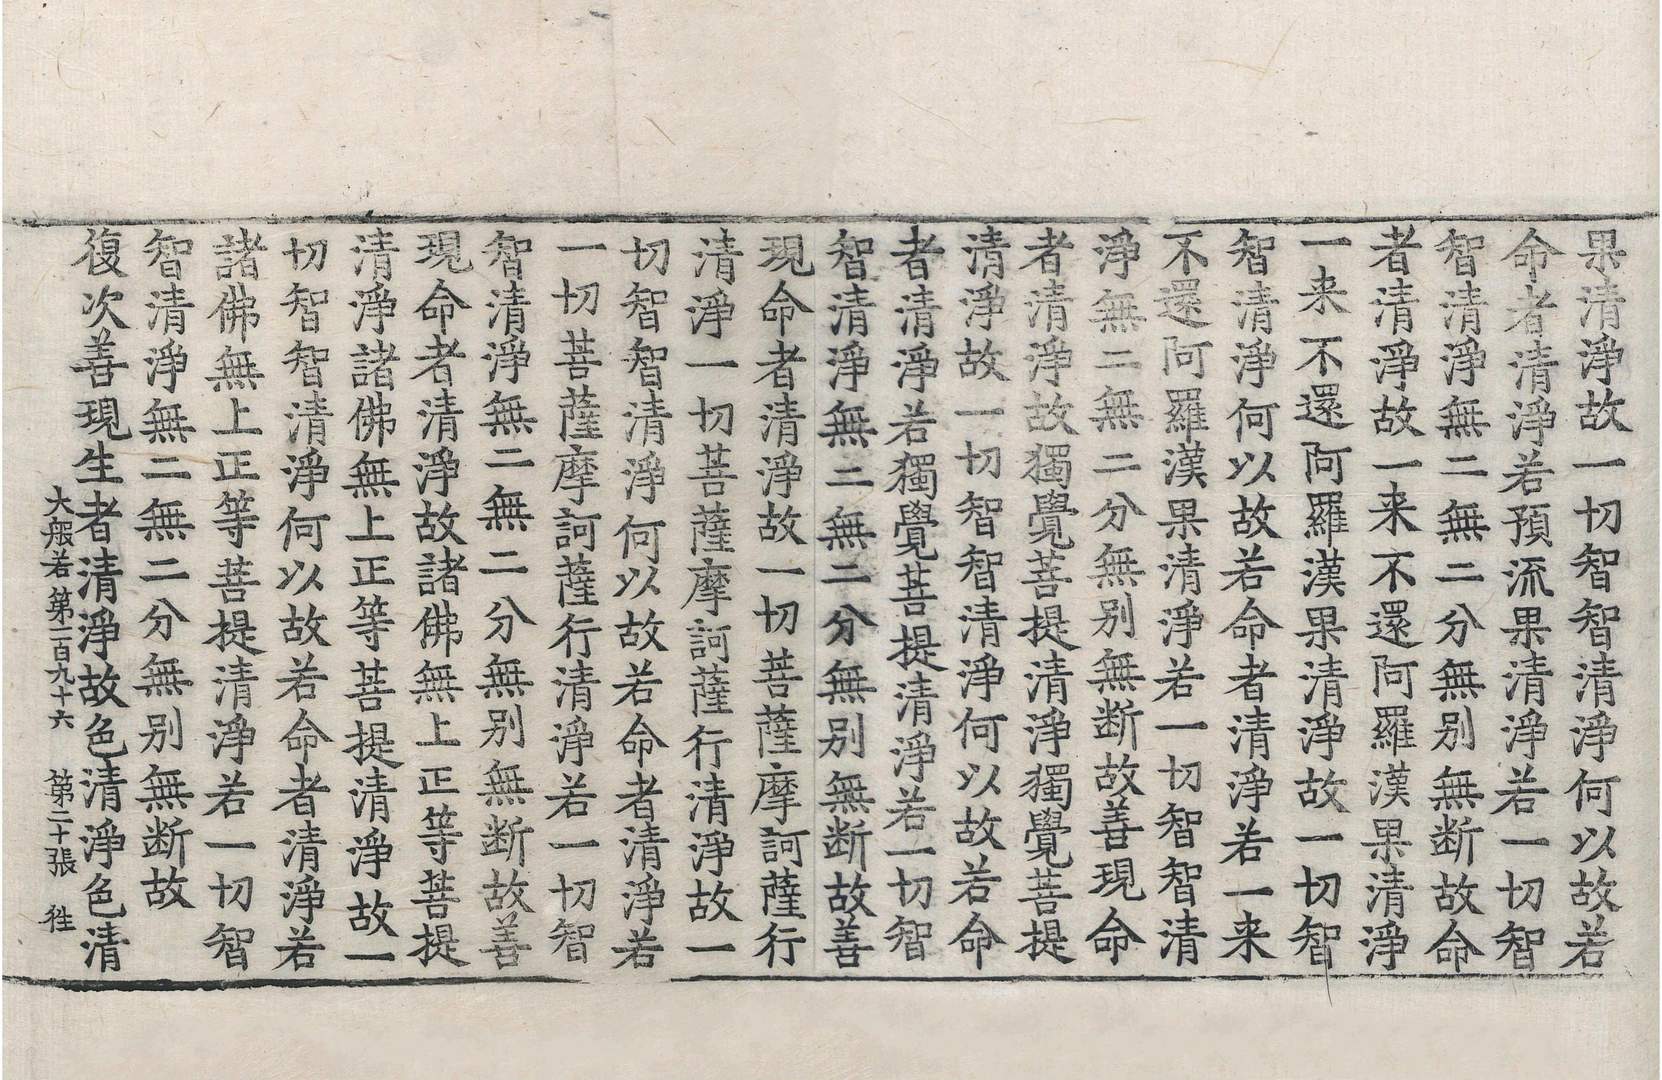 果清淨故一切智智清淨何以故若
命者清淨若預流果清淨若一切智
智清淨無二無二分無别無断故命
者清淨故一来不還阿羅漢果清淨
一来不還阿羅漢果清淨故一切智
智清淨何以故若命者清淨若一来
不還阿羅漢果清淨若一切智智清
淨無二無二分無别無断故善現命
者清淨故獨覺菩提清淨獨覺菩提
清淨故一切智智清淨何以故若命
者清淨若獨覺菩提清淨若一切智
智清淨無二無二分無别無断故善
現命者清淨故一切菩薩摩訶薩行
清淨一切菩薩摩訶薩行清淨故一
切智智清淨何以故若命者清淨若
一切菩薩摩訶薩行清淨若一切智
智清淨無二無二分無别無断故善
現命者清淨故諸佛無上正等菩提
清淨諸佛無上正等菩提清淨故一
切智智清淨何以故若命者清淨若
諸佛無上正等菩提清淨若一切智
智清淨無二無二分無别無断故
復次善現生者清淨故色清淨色清
大般若第一百九十六 第二十張 徃